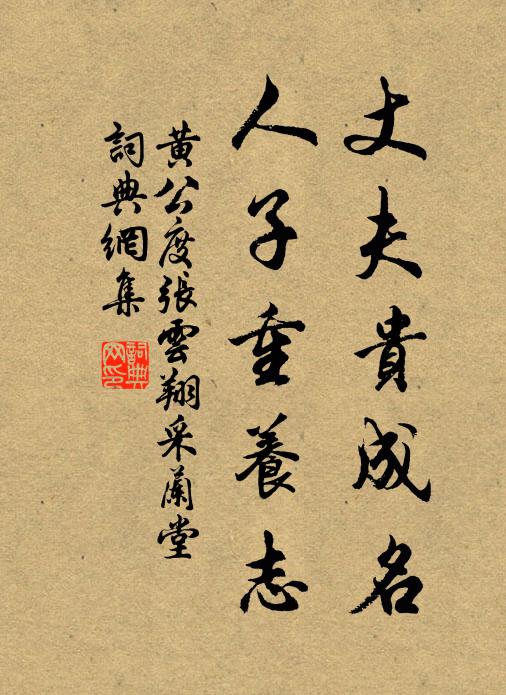 丈夫貴成名
人子重養志
黃公度張雲翔采蘭堂
詞典網集
詞典网印